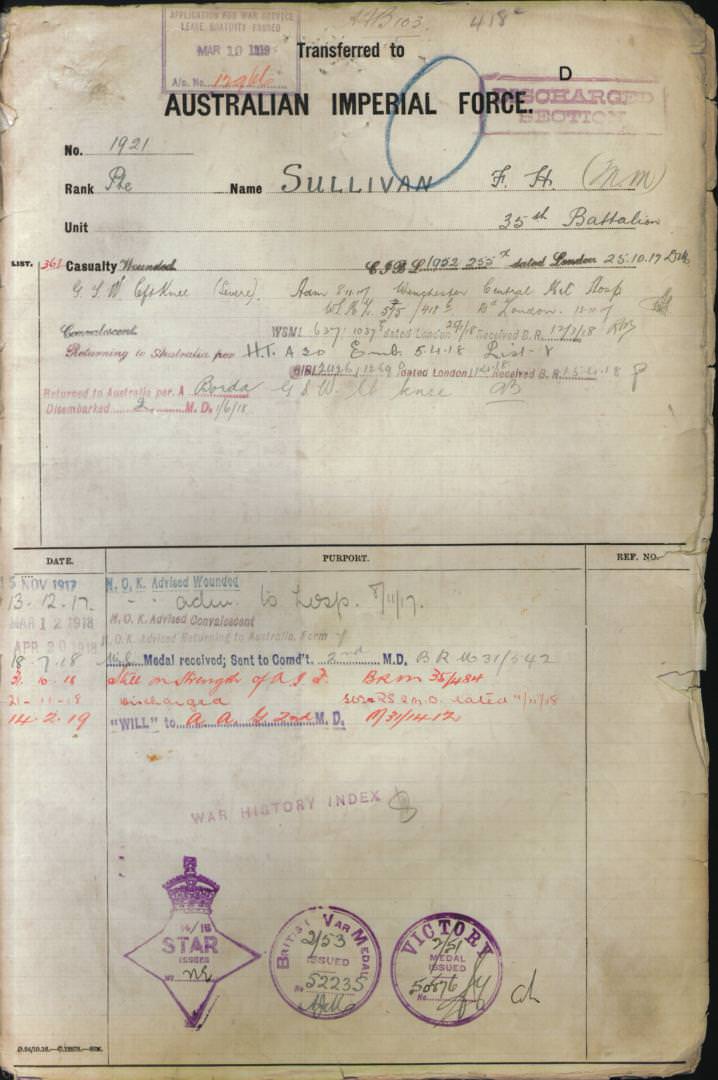 APPLICATION FOR WAR SERVICE
LEAVE GRATUITY PASSED
MAR 10 1919
A/c. No.
418
Transferred to
D
AUSTRALIAN IMPERIAL FORCE.
DISCHARGED
SECTION
No. 1921
Rank Pte Name SULLIVAN F. H. (M.M)
Unit 35th Battalion
LIST. 361 Casualty Wounded dated London 25.10.17
G.S.W. Left Knee (Severe) Adm 8.11.17 Winchester Central Mil Hosp
London.
Convalescent WSML dated London Received B.R.
Returning to Australia per H.T. A 30 Emb. 5.4.18 List
dated London Received B.R. 15.4.18
Returned to Australia per. A Borda G S W. Lt knee
Disembarked 2 M.D. 1/6/18
DATE. PURPORT. REF. NO.
5 NOV 1917 N.O.K. Advised Wounded
13.12.17. " " adm. to hosp. 8/11/17.
MAR 12 1918 N.O.K. Advised Convalescent
APR 20 1918 N.O.K. Advised Returning to Australia, Form
18.7.18 Medal received; Sent to Comd't. 2nd M.D. BRM 31/542
3.10.18 Still on Strength of A.I.F. BRM 35/484
21-11-18 Discharged 2 M.D. dated 11/11/18
14.2.19 "WILL" to A. A. G 2nd M.D. 31/1412
WAR HISTORY INDEX
14/15
STAR
ISSUED
No
BRITISH WAR MEDAL
2/53
ISSUED
No 52235
VICTORY
2/51
MEDAL
ISSUED
50576
No.